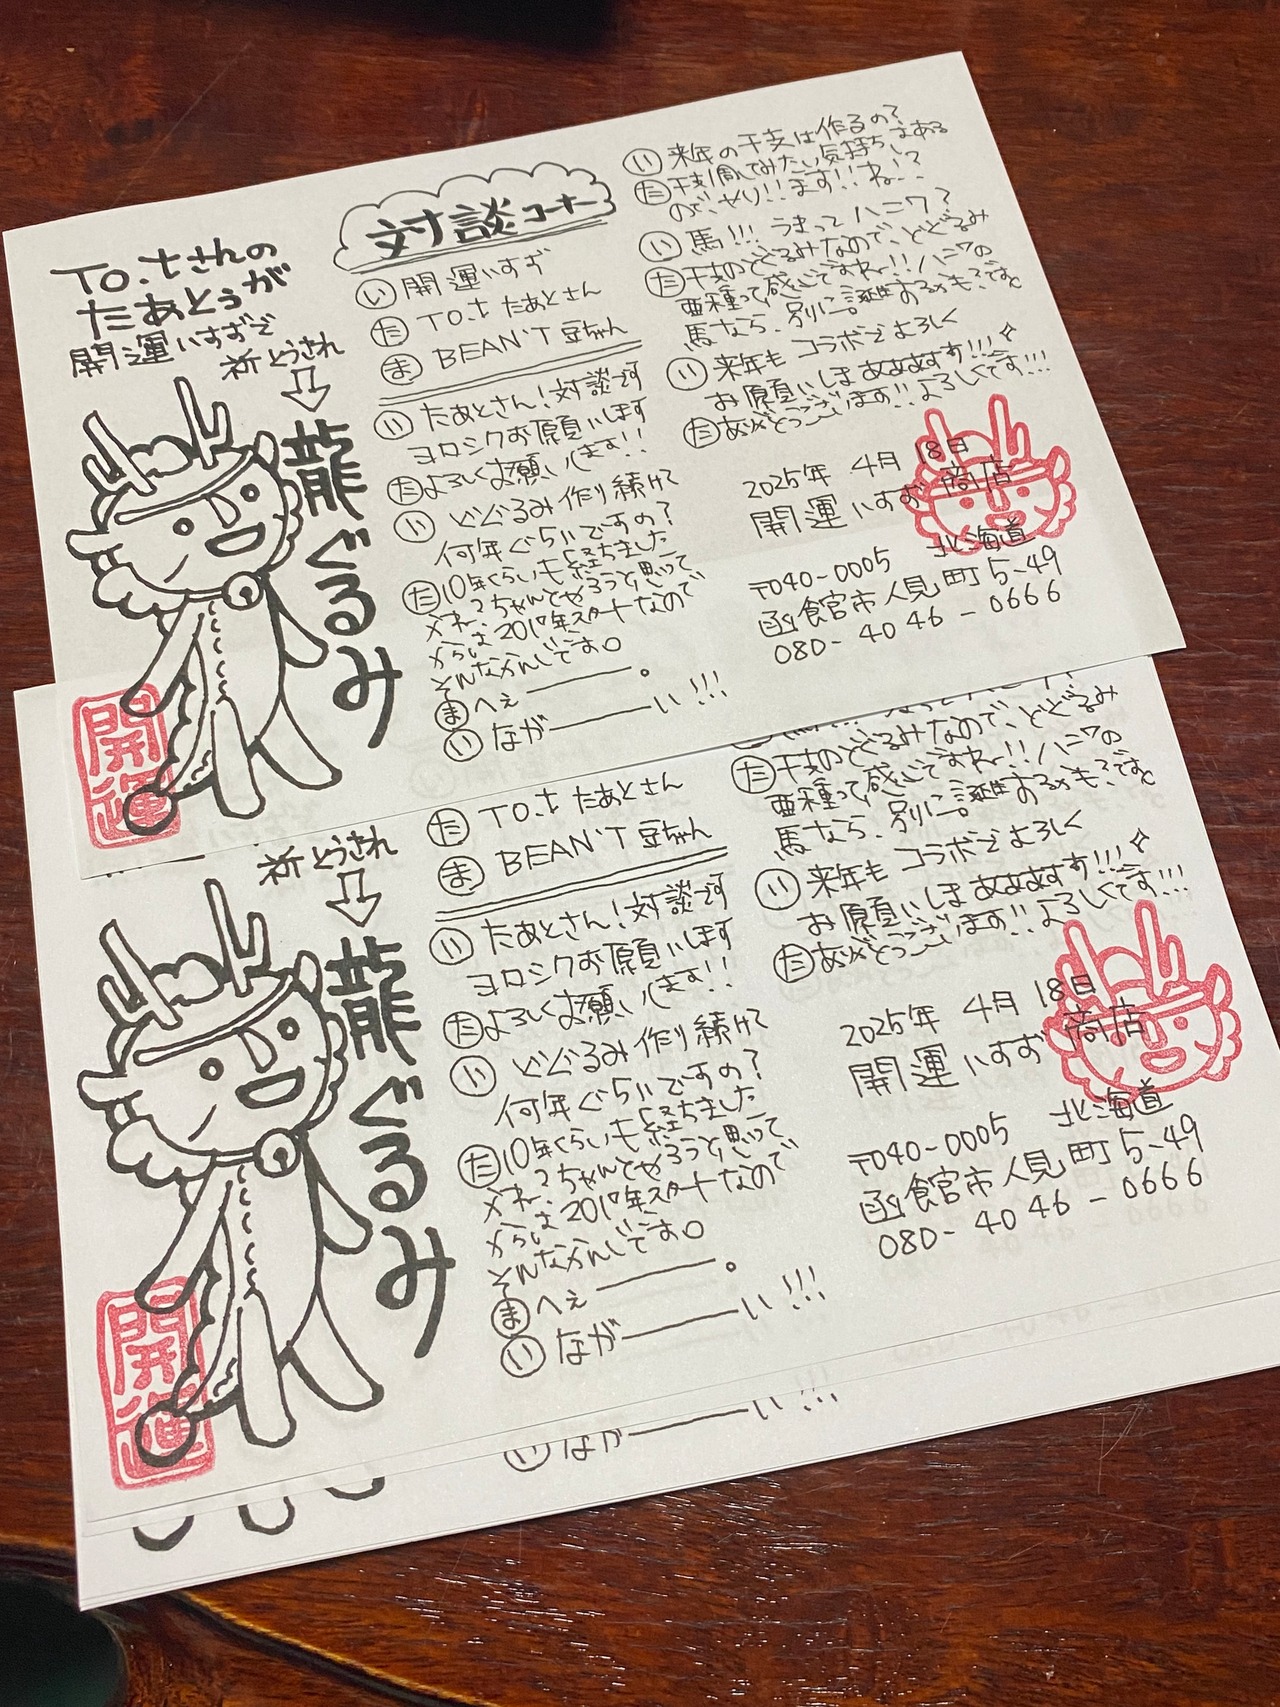 TO.tさんの
たあとぅが
開運いすずで
祈とうされ
龍ぐるみ
開運
対談コーナー
い 開運いすず
た TO.t たあとさん
ま BEAN'T 豆ちゃん
い たあとさん!対談です
ヨロシクお願いします
た よろしくお願いします!!
い どぐるみ作り続けて
何年ぐらいですの?
た 10年くらいも経ちました
かね?ちゃんとやろうと思って
からは2019年スタートなので
そんなかんじです。
ま へぇ―――。
い なが―――い!!!
い 来年の干支は作るの?
た 干支1周してみたい気持ちはある
ので、やり!!ます!!ね!?
い 馬!!! うまって ハニワ?
た 干支のどぐるみなので、どぐるみ
亜種って感じですねー!!ハニワの
馬なら、別に誕生するかも?ですと
い 来年も コラボでよろしく
お願いしまぁぁぁすす!!!
た ありがとうございます!!よろしくです!!!
2025年 4月 18日
開運いすず商店
北海道
〒040-0005
函館市人見町5-49
080-4046-0666
た TO.t たあとさん
ま BEAN'T 豆ちゃん
祈とうされ
龍ぐるみ
開運
い たあとさん!対談です
ヨロシクお願いします
た よろしくお願いします!!
い どぐるみ作り続けて
何年ぐらいですの?
た 10年くらいも経ちました
かね?ちゃんとやろうと思って
からは2019年スタートなので
そんなかんじです。
ま へぇ―――。
い なが―――い!!!
た 干支のどぐるみなので、どぐるみ
亜種って感じですねー!!ハニワの
馬なら、別に誕生するかも?ですと
い 来年も コラボでよろしく
お願いしまぁぁぁすす!!!
た ありがとうございます!!よろしくです!!!
2025年 4月 18日
開運いすず商店
北海道
〒040-0005
函館市人見町5-49
080-4046-0666
い なが―――い!!!